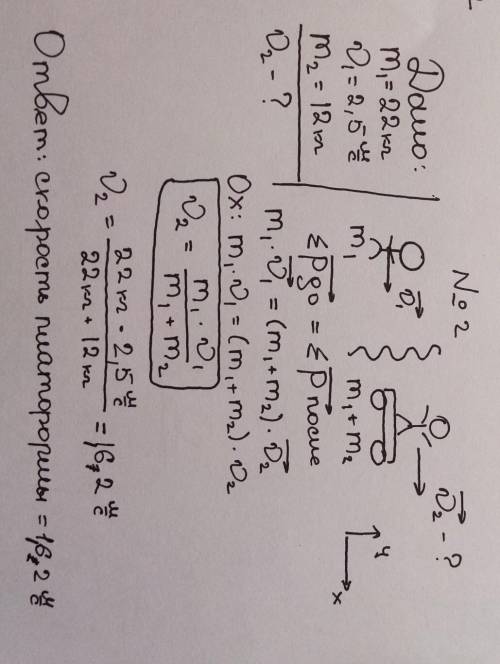 № 2
Дано:
m₁ = 22 кг
υ₁ = 2,5 м/с
m₂ = 12 кг
υ₂ - ?
m₁ υ₁
m₁ + m₂ υ₂ - ?
y
x
Σp до = Σp после
m₁ · υ₁ = (m₁ + m₂) · υ₂
Ox: m₁ · υ₁ = (m₁ + m₂) · υ₂
υ₂ = m₁ · υ₁ / m₁ + m₂
υ₂ = 22 кг · 2,5 м/с / 22 кг + 12 кг = 1,6,2 м/с
Ответ: скорость платформы = 1,6,2 м/с